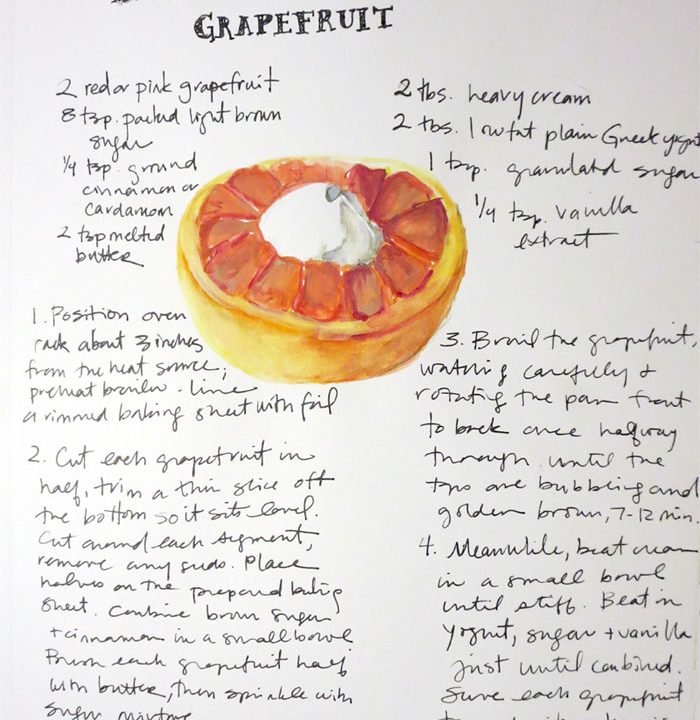 GRAPEFRUIT
2 red or pink grapefruit
8 tsp. packed light brown
sugar
1/4 tsp. ground
cinnamon or
cardamom
2 tsp melted
butter
2 tbs. heavy cream
2 tbs. lowfat plain Greek yogurt
1 tsp. granulated sugar
1/4 tsp. vanilla
extract
1. Position oven
rack about 3 inches
from the heat source;
preheat broiler. Line
a rimmed baking sheet with foil
2. Cut each grapefruit in
half, trim a thin slice off
the bottom so it sits level.
Cut around each segment,
remove any seeds. Place
halves on the prepared baking
sheet. Combine brown sugar
+ cinnamon in a small bowl
Brush each grapefruit half
with butter, then sprinkle with
sugar mixture.
3. Broil the grapefruit,
watching carefully +
rotating the pan front
to back once halfway
through until the
tops are bubbling and
golden brown, 7-12 min.
4. Meanwhile, beat cream
in a small bowl
until stiff. Beat in
yogurt, sugar + vanilla
just until combined.
Serve each grapefruit